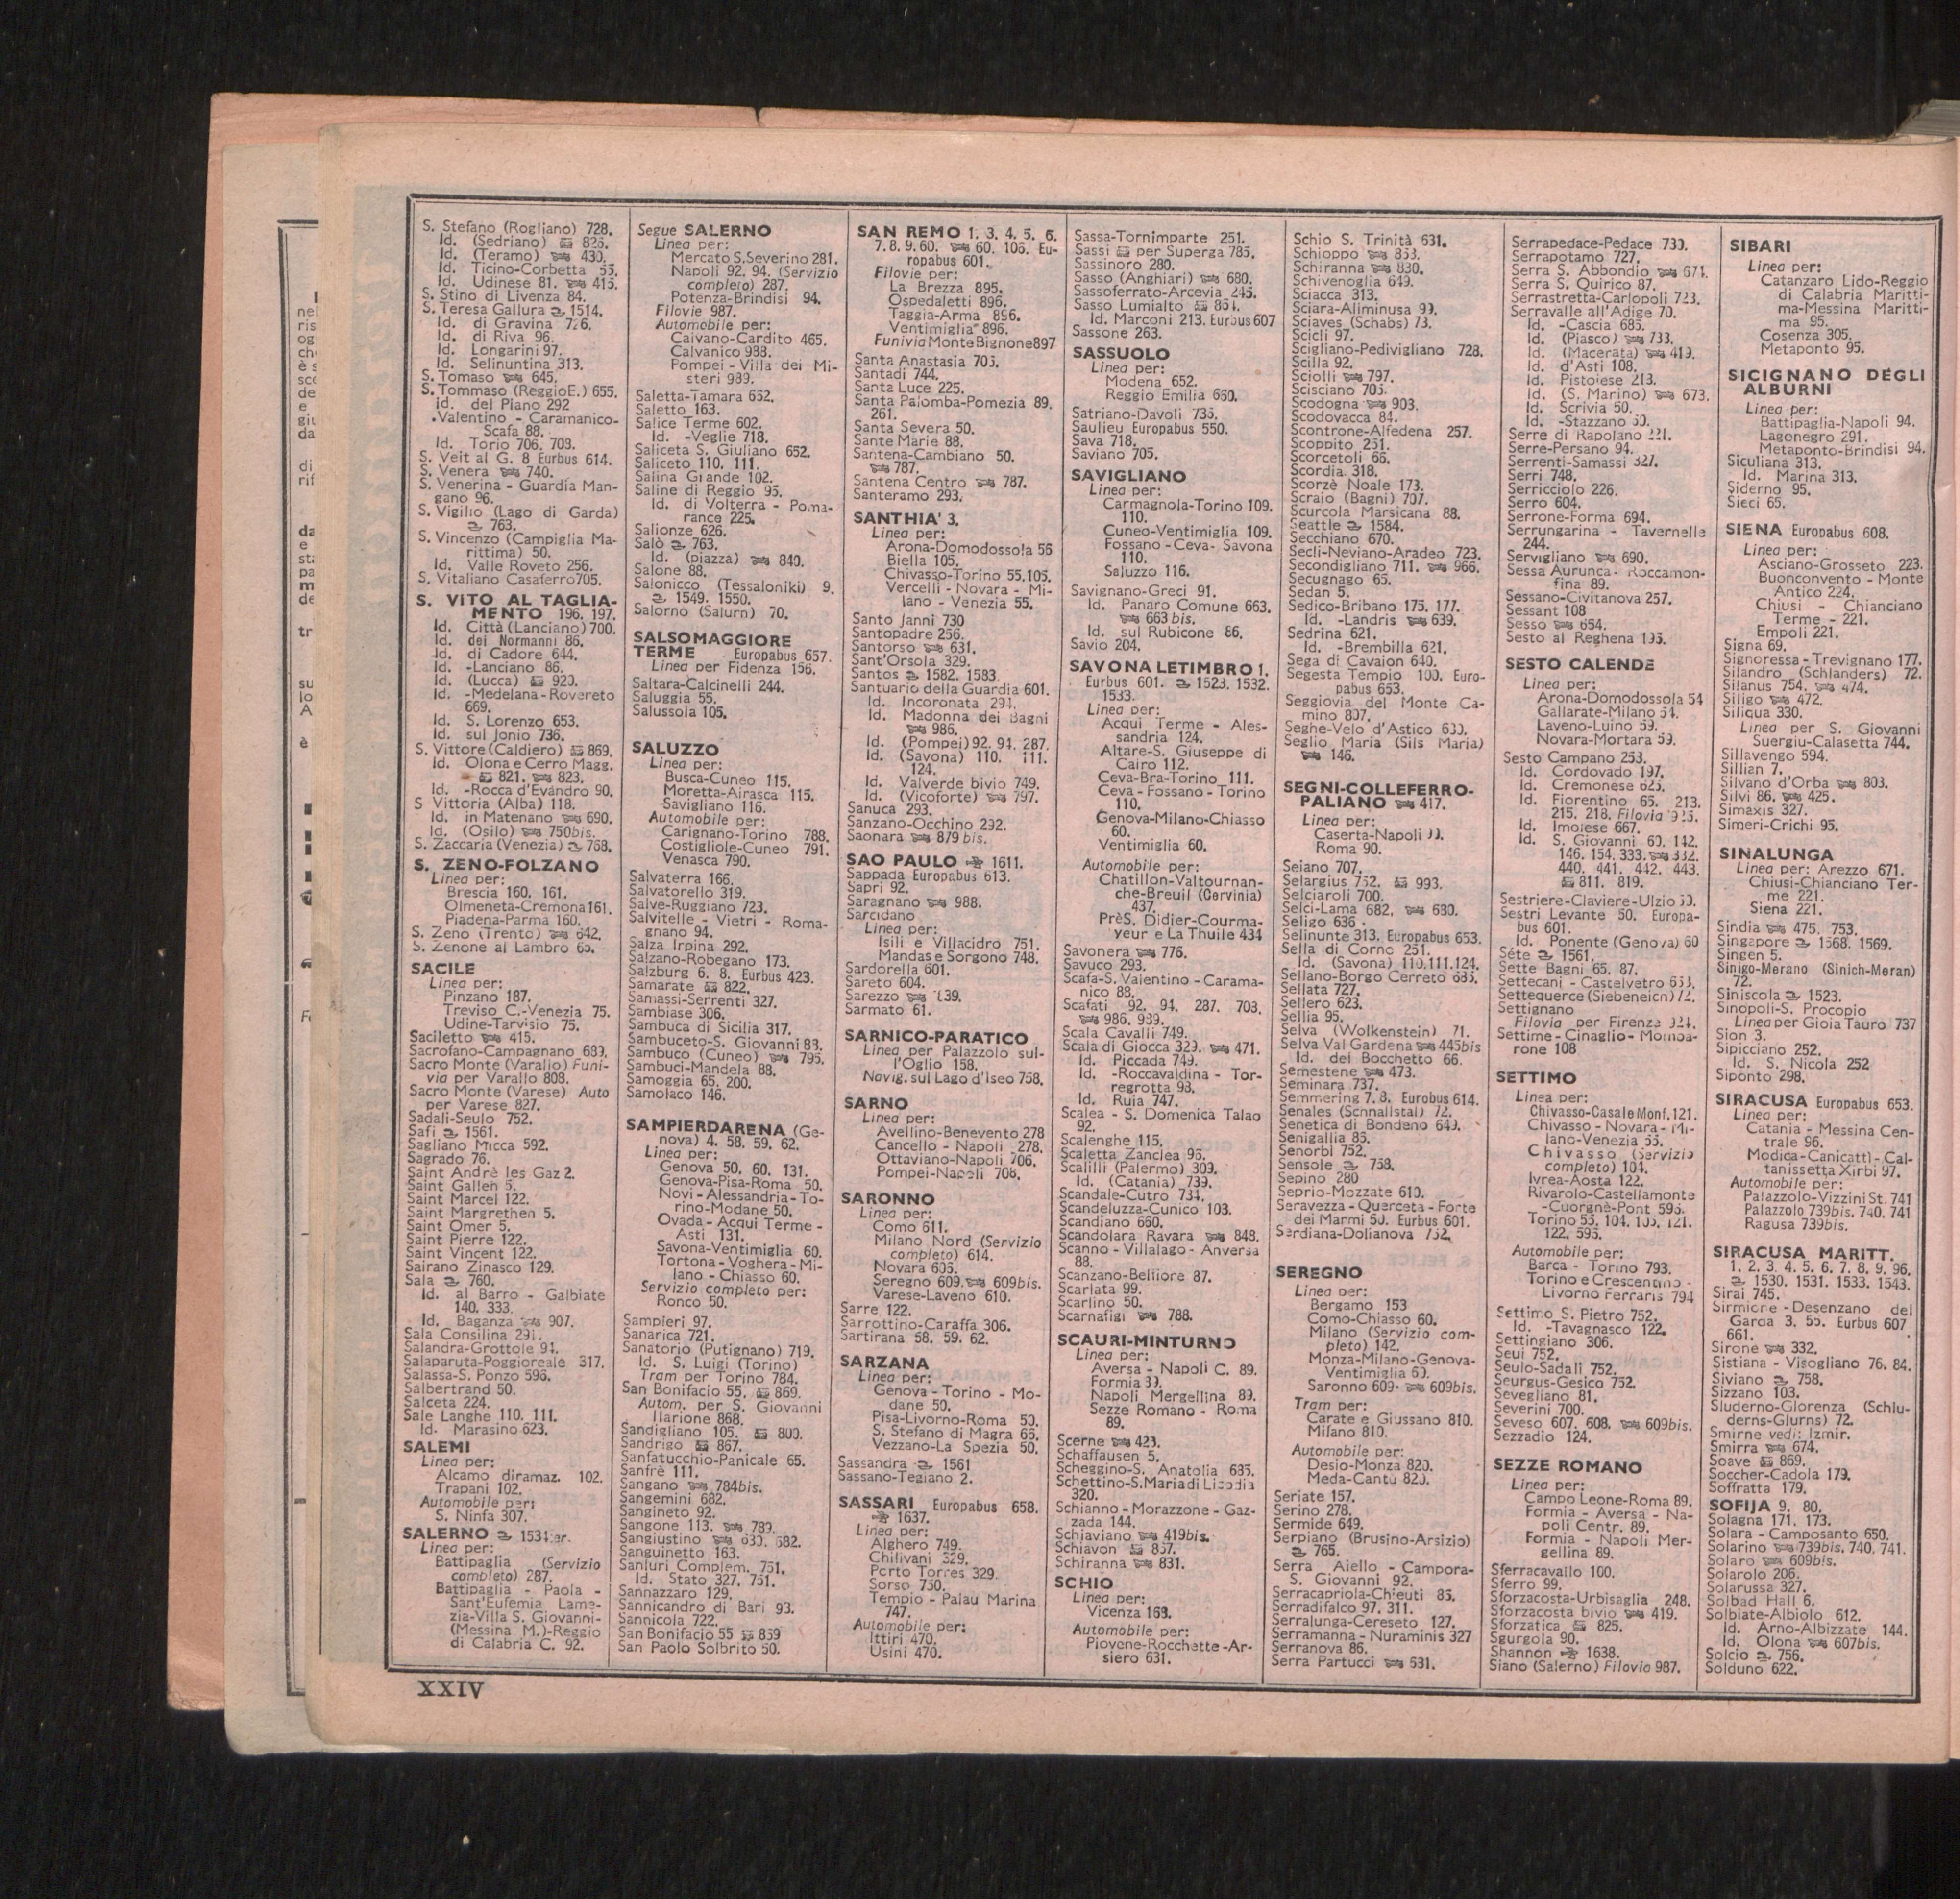 S. Stefano (Rogliano) 728.
Id. (Sedriano) 826.
Id. (Teramo) 430.
Id. Ticino-Corbetta 55.
Id. Udinese 81. 415.
S. Stino di Livenza 84.
S. Teresa Gallura 1514.
Id. di Gravina 726.
Id. di Riva 96.
Id. Longarini 97.
Id. Selinuntina 313.
S. Tomaso 645.
S. Tommaso (ReggioE.) 655.
id. del Piano 292
.Valentino - Caramanico-
Scafa 88.
Id. Torio 706, 708.
S. Veit al G. 8 Eurbus 614.
S. Venera 740.
S. Venerina - Guardia Man-
gano 96.
S. Vigilio (Lago di Garda)
763.
S. Vincenzo (Campiglia Ma-
rittima) 50.
Id. Valle Roveto 256.
S. Vitaliano Casaferro705.
S. VITO AL TAGLIA-
MENTO 196. 197.
Id. Città (Lanciano) 700.
Id. dei Normanni 86.
Id. di Cadore 644.
Id. -Lanciano 86.
Id. (Lucca) 920.
Id. -Medelana-Rovereto
669.
Id. S. Lorenzo 653.
Id. sul Jonio 736.
S. Vittore (Caldiero) 869.
Id. Olona e Cerro Magg.
821. 823.
Id. -Rocca d'Evandro 90.
S Vittoria (Alba) 118.
Id. in Matenano 690.
Id. (Osilo) 750bis.
S. Zaccaria (Venezia) 768.
S. ZENO-FOLZANO
Linea per:
Brescia 160. 161.
Olmeneta-Cremona161.
Piadena-Parma 160.
S. Zeno (Trento) 642.
S. Zenone al Lambro 65.
SACILE
Linea per:
Pinzano 187.
Treviso C.-Venezia 75.
Udine-Tarvisio 75.
Saciletto 415.
Sacrofano-Campagnano 689.
Sacro Monte (Varallo) Funi-
via per Varallo 808.
Sacro Monte (Varese) Auto
per Varese 827.
Sadali-Seulo 752.
Safi 1561.
Sagliano Micca 592.
Sagrado 76.
Saint Andrè les Gaz 2.
Saint Gallen 5.
Saint Marcel 122.
Saint Margrethen 5.
Saint Omer 5.
Saint Pierre 122.
Saint Vincent 122.
Sairano Zinasco 129.
Sala 760.
Id. al Barro - Galbiate
140. 333.
Id. Baganza 907.
Sala Consilina 291.
Salandra-Grottole 94.
Salaparuta-Poggioreale 317.
Salassa-S. Ponzo 596.
Salbertrand 50.
Salceta 224.
Sale Langhe 110. 111.
Id. Marasino 623.
SALEMI
Linea per:
Alcamo diramaz. 102.
Trapani 102.
Automobile per:
S. Ninfa 307.
SALERNO
Linea per:
Battipaglia (Servizio
completo) 287.
Battipaglia - Paola -
Sant'Eufemia Lame-
zia-Villa S. Giovanni-
(Messina M.)-Reggio
di Calabria C. 92.
Segue SALERNO
Linea per:
Mercato S.Severino 281.
Napoli 92. 94. (Servizio
completo) 287.
Potenza-Brindisi 94.
Filovie 987.
Automobile per:
Caivano-Cardito 465.
Calvanico 988.
Pompei - Villa dei Mi-
steri 989.
Saletta-Tamara 652.
Saletto 163.
Salice Terme 602.
Id. -Veglie 718.
Saliceta S. Giuliano 652.
Saliceto 110. 111.
Salina Grande 102.
Saline di Reggio 95.
Id. di Volterra - Poma-
rance 225.
Salionze 626.
Salò 763.
Id. (piazza) 840.
Salone 88.
Salonicco (Tessaloniki) 9.
1549. 1550.
Salorno (Salurn) 70.
SALSOMAGGIORE
TERME Europabus 657.
Linea per Fidenza 156.
Saltara-Calcinelli 244.
Saluggia 55.
Salussola 105.
SALUZZO
Linea per:
Busca-Cuneo 115.
Moretta-Airasca 115.
Savigliano 116.
Automobile per:
Carignano-Torino 788.
Costigliole-Cuneo 791.
Venasca 790.
Salvaterra 166.
Salvatorello 319.
Salve-Ruggiano 723.
Salvitelle - Vietri - Roma-
gnano 94.
Salza Irpina 292.
Salzano-Robegano 173.
Salzburg 6. 8. Eurbus 423.
Samarate 822.
Samassi-Serrenti 327.
Sambiase 306.
Sambuca di Sicilia 317.
Sambuceto-S. Giovanni 88.
Sambuco (Cuneo) 795.
Sambuci-Mandela 88.
Samoggia 65. 200.
Samolaco 146.
SAMPIERDARENA (Ge-
nova) 4. 58. 59. 62.
Linea per:
Genova 50. 60. 131.
Genova-Pisa-Roma 50.
Novi - Alessandria - To-
rino-Modane 50.
Ovada - Acqui Terme -
Asti 131.
Savona-Ventimiglia 60.
Tortona - Voghera - Mi-
lano - Chiasso 60.
Servizio completo per:
Ronco 50.
Sampieri 97.
Sanarica 721.
Sanatorio (Putignano) 719.
Id. S. Luigi (Torino)
Tram per Torino 784.
San Bonifacio 55. 869.
Autom. per S. Giovanni
Ilarione 868.
Sandigliano 105. 800.
Sandrigo 867.
Sanfatucchio-Panicale 65.
Sanfrè 111.
Sangano 784bis.
Sangemini 682.
Sangineto 92.
Sangone 113. 789.
Sangiustino 630. 682.
Sanguinetto 163.
Sanluri Complem. 751.
Id. Stato 327. 751.
Sannazzaro 129.
Sannicandro di Bari 93.
Sannicola 722.
San Bonifacio 55 859
San Paolo Solbrito 50.
SAN REMO 1. 3. 4. 5. 6.
7. 8. 9. 60. 60. 106. Eu-
ropabus 601.
Filovie per:
La Brezza 895.
Ospedaletti 896.
Taggia-Arma 896.
Ventimiglia 896.
Funivia MonteBignone897
Santa Anastasia 705.
Santadi 744.
Santa Luce 225.
Santa Palomba-Pomezia 89.
261.
Santa Severa 50.
Sante Marie 88.
Santena-Cambiano 50.
787.
Santena Centro 787.
Santeramo 293.
SANTHIA' 3.
Linea per:
Arona-Domodossola 56
Biella 105.
Chivasso-Torino 55.105.
Vercelli - Novara - Mi-
lano - Venezia 55.
Santo Janni 730
Santopadre 256.
Santorso 631.
Sant'Orsola 329.
Santos 1582. 1583.
Santuario della Guardia 601.
Id. Incoronata 294.
Id. Madonna dei Bagni
986.
Id. (Pompei) 92. 94. 287.
Id. (Savona) 110. 111.
124.
Id. Valverde bivio 749.
Id. (Vicoforte) 797.
Sanuca 293.
Sanzano-Occhino 292.
Saonara 879 bis.
SAO PAULO 1611.
Sappada Europabus 613.
Sapri 92.
Saragnano 988.
Sarcidano
Linea per:
Isili e Villacidro 751.
Mandas e Sorgono 748.
Sardorella 601.
Sareto 604.
Sarezzo
Sarmato 61.
SARNICO-PARATICO
Linea per Palazzolo sul-
l'Oglio 158.
Navig. sul Lago d'Iseo 758.
SARNO
Linea per:
Avellino-Benevento 278
Cancello - Napoli 278.
Ottaviano-Napoli 706.
Pompei-Napoli 708.
SARONNO
Linea per:
Como 611.
Milano Nord (Servizio
completo) 614.
Novara 606.
Seregno 609. 609bis.
Varese-Laveno 610.
Sarre 122.
Sarrottino-Caraffa 306.
Sartirana 58. 59. 62.
SARZANA
Linea per:
Genova - Torino - Mo-
dane 50.
Pisa-Livorno-Roma 50.
S. Stefano di Magra 66.
Vezzano-La Spezia 50.
Sassandra 1561
Sassano-Tegiano 2.
SASSARI Europabus 658.
1637.
Linea per:
Alghero 749.
Chilivani 329.
Porto Torres 329.
Sorso 750.
Tempio - Palau Marina
747.
Automobile per:
Ittiri 470.
Usini 470.
Sassa-Tornimparte 251.
Sassi per Superga 785.
Sassinoro 280.
Sasso (Anghiari) 680.
Sassoferrato-Arcevia 245.
Sasso Lumialto 854.
Id. Marconi 213. Eurbus607
Sassone 263.
SASSUOLO
Linea per:
Modena 652.
Reggio Emilia 660.
Satriano-Davoli 736.
Saulieu Europabus 550.
Sava 718.
Saviano 705.
SAVIGLIANO
Linea per:
Carmagnola-Torino 109.
110.
Cuneo-Ventimiglia 109.
Fossano -Ceva- Savona
110.
Saluzzo 116.
Savignano-Greci 91.
Id. Panaro Comune 663.
663 bis.
Id. sul Rubicone 86.
Savio 204.
SAVONA LETIMBRO 1.
Eurbus 601. 1523. 1532.
1533.
Linea per:
Acqui Terme - Ales-
sandria 124.
Altare-S. Giuseppe di
Cairo 112.
Ceva-Bra-Torino 111.
Ceva - Fossano - Torino
110.
Genova-Milano-Chiasso
60.
Ventimiglia 60.
Automobile per:
Chatillon-Valtournan-
che-Breuil (Cervinia)
437.
PrèS. Didier-Courma-
yeur e La Thuile 434
Savonera 776.
Savuco 293.
Scafa-S. Valentino - Carama-
nico 88.
Scafati 92. 94. 287. 708.
986. 989.
Scala Cavalli 749.
Scala di Giocca 329. 471.
Id. Piccada 749.
Id. -Roccavaldina - Tor-
regrotta 98.
Id. Ruia 747.
Scalea - S. Domenica Talao
92.
Scalenghe 115.
Scaletta Zanclea 96.
Scalilli (Palermo) 309.
Id. (Catania) 739.
Scandale-Cutro 734.
Scandeluzza-Cunico 103.
Scandiano 660.
Scandolara Ravara 848.
Scanno - Villalago - Anversa
88.
Scanzano-Belfiore 87.
Scarlata 99.
Scarlino 50.
Scarnafigi 788.
SCAURI-MINTURNO
Linea per:
Aversa - Napoli C. 89.
Formia 89.
Napoli Mergellina 89.
Sezze Romano - Roma
89.
Scerne 423.
Schaffausen 5.
Scheggino-S. Anatolia 685.
Schettino-S.Maria di Licodia
320.
Schianno - Morazzone - Gaz-
zada 144.
Schiaviano 419bis.
Schiavon 867.
Schiranna 831.
SCHIO
Linea per:
Vicenza 168.
Automobile per:
Piovene-Rocchette -Ar-
siero 631.
Schio S. Trinità 631.
Schioppo 853.
Schiranna 830.
Schivenoglia 649.
Sciacca 313.
Sciara-Aliminusa 99.
Sciaves (Schabs) 73.
Scicli 97.
Scigliano-Pedivigliano 728.
Scilla 92.
Sciolli 797.
Scisciano 705.
Scodogna 903.
Scodovacca 84.
Scontrone-Alfedena 257.
Scoppito 251.
Scorcetoli 66.
Scordia 318.
Scorzè Noale 173.
Scraio (Bagni) 707.
Scurcola Marsicana 88.
Seattle 1584.
Secchiano 670.
Secli-Neviano-Aradeo 723.
Secondigliano 711. 966.
Secugnago 65.
Sedan 5.
Sedico-Bribano 175. 177.
Id. -Landris 639.
Sedrina 621.
Id. -Brembilla 621.
Sega di Cavaion 640.
Segesta Tempio 100. Euro-
pabus 653.
Seggiovia del Monte Ca-
mino 807.
Seghe-Velo d'Astico 630.
Seglio Maria (Sils Maria)
146.
SEGNI-COLLEFERRO-
PALIANO 417.
Linea per:
Caserta-Napoli
Roma 90.
Seiano 707.
Selargius 752. 993.
Selciaroli 700.
Selci-Lama 682. 680.
Seligo 636.
Selinunte 313. Europabus 653.
Sella di Corno 251.
Id. (Savona) 110.111.124.
Sellano-Borgo Cerreto 685.
Sellata 727.
Sellero 623.
Sellia 95.
Selva (Wolkenstein) 71.
Selva Val Gardena 445bis
Id. del Bocchetto 66.
Semestene 473.
Seminara 737.
Semmering 7. 8. Eurobus 614.
Senales (Schnallstal) 72.
Senetica di Bondeno 649.
Senigallia 85.
Senorbì 752.
Sensole 758.
Sepino 280
Seprio-Mozzate 610.
Seravezza - Querceta - Forte
dei Marmi 50. Eurbus 601.
Serdiana-Dolianova 752.
SEREGNO
Linea per:
Bergamo 153
Como-Chiasso 60.
Milano (Servizio com-
pleto) 142.
Monza-Milano-Genova-
Ventimiglia 60.
Saronno 609. 609bis.
Tram per:
Carate e Giussano 810.
Milano 810.
Automobile per:
Desio-Monza 820.
Meda-Cantù 820.
Seriate 157.
Serino 278.
Sermide 649.
Serpiano (Brusino-Arsizio)
765.
Serra Aiello - Campora-
S. Giovanni 92.
Serracapriola-Chieuti 85.
Serradifalco 97. 311.
Serralunga-Cereseto 127.
Serramanna - Nuraminis 327
Serranova 86.
Serra Partucci 631.
Serrapedace-Pedace 730.
Serrapotamo 727.
Serra S. Abbondio 671.
Serra S. Quirico 87.
Serrastretta-Carlopoli 723.
Serravalle all'Adige 70.
Id. -Cascia 685.
Id. (Piasco) 733.
Id. (Macerata) 419.
Id. d'Asti 108.
Id. Pistoiese 213.
Id. (S. Marino) 673.
Id. Scrivia 50.
Id. -Stazzano 50.
Serre di Rapolano 221.
Serre-Persano 94.
Serrenti-Samassi 327.
Serri 748.
Serricciolo 226.
Serro 604.
Serrone-Forma 694.
Serrungarina - Tavernelle
244.
Servigliano 690.
Sessa Aurunca- Roccamon-
fina 89.
Sessano-Civitanova 257.
Sessant 108
Sesso 654.
Sesto al Reghena 196.
SESTO CALENDE
Linea per:
Arona-Domodossola 54
Gallarate-Milano 54.
Laveno-Luino 59.
Novara-Mortara 59.
Sesto Campano 253.
Id. Cordovado 197.
Id. Cremonese 625.
Id. Fiorentino 65. 213.
215. 218. Filovia 926.
Id. Imolese 667.
Id. S. Giovanni 60. 142.
146. 154. 333. 332.
440. 441. 442. 443.
811. 819.
Sestriere-Claviere-Ulzio 50.
Sestri Levante 50. Europa-
bus 601.
Id. Ponente (Genova) 60
Séte 1561.
Sette Bagni 65. 87.
Settecani - Castelvetro 653.
Settequerce (Siebeneich) 72.
Settignano
Filovia per Firenze 924.
Settime - Cinaglio - Momba-
rone 108
SETTIMO
Linea per:
Chivasso-Casale Monf.121.
Chivasso - Novara - Mi-
lano-Venezia 55.
Chivasso (Servizio
completo) 104.
Ivrea-Aosta 122.
Rivarolo-Castellamonte
-Cuorgnè-Pont 596.
Torino 55. 104. 105. 121.
122. 595.
Automobile per:
Barca - Torino 793.
Torino e Crescentino -
Livorno Ferraris 794
Settimo S. Pietro 752.
Id. -Tavagnasco 122.
Settingiano 306.
Seui 752.
Seulo-Sadali 752.
Seurgus-Gesico 752.
Sevegliano 81.
Severini 700.
Seveso 607. 608. 609bis.
Sezzadio 124.
SEZZE ROMANO
Linea per:
Campo Leone-Roma 89.
Formia - Aversa - Na-
poli Centr. 89.
Formia - Napoli Mer-
gellina 89.
Sferracavallo 100.
Sferro 99.
Sforzacosta-Urbisaglia 248.
Sforzacosta bivio 419.
Sforzatica 825.
Sgurgola 90.
Shannon 1638.
Siano (Salerno) Filovia 987.
SIBARI
Linea per:
Catanzaro Lido-Reggio
di Calabria Maritti-
ma-Messina Maritti-
ma 95.
Cosenza 305.
Metaponto 95.
SICIGNANO DEGLI
ALBURNI
Linea per:
Battipaglia-Napoli 94.
Lagonegro 291.
Metaponto-Brindisi 94.
Siculiana 313.
Id. Marina 313.
Siderno 95.
Sieci 65.
SIENA Europabus 608.
Linea per:
Asciano-Grosseto 223.
Buonconvento - Monte
Antico 224.
Chiusi - Chianciano
Terme - 221.
Empoli 221.
Signa 69.
Signoressa - Trevignano 177.
Silandro (Schlanders) 72.
Silanus 754. 474.
Siligo 472.
Siliqua 330.
Linea per S. Giovanni
Suergiu-Calasetta 744.
Sillavengo 594.
Sillian 7.
Silvano d'Orba 803.
Silvi 86. 425.
Simaxis 327.
Simeri-Crichi 95.
SINALUNGA
Linea per: Arezzo 671.
Chiusi-Chianciano Ter-
me 221.
Siena 221.
Sindia 475. 753.
Singapore 1568. 1569.
Singen 5.
Sinigo-Merano (Sinich-Meran)
72.
Siniscola 1523.
Sinopoli-S. Procopio
Linea per Gioia Tauro 737
Sion 3.
Sipicciano 252.
Id. S. Nicola 252
Siponto 298.
SIRACUSA Europabus 653.
Linea per:
Catania - Messina Cen-
trale 96.
Modica-Canicattì - Cal-
tanissetta Xirbi 97.
Automobile per:
Palazzolo-Vizzini St. 741
Palazzolo 739bis. 740. 741
Ragusa 739bis.
SIRACUSA MARITT.
1. 2. 3. 4. 5. 6. 7. 8. 9. 96.
1530. 1531. 1533. 1543.
Sirai 745.
Sirmione - Desenzano del
Garda 3. 55. Eurbus 607
661.
Sirone 332.
Sistiana - Visogliano 76. 84.
Siviano 758.
Sizzano 103.
Sluderno-Glorenza (Schlu-
derns-Glurns) 72.
Smirne vedi: Izmir.
Smirra 674.
Soave 869.
Soccher-Cadola 179.
Soffratta 179.
SOFIJA 9. 80.
Solagna 171. 173.
Solara - Camposanto 650.
Solarino 739bis. 740. 741.
Solaro 609bis.
Solarolo 206.
Solarussa 327.
Solbad Hall 6.
Solbiate-Albiolo 612.
Id. Arno-Albizzate 144.
Id. Olona 607bis.
Solcio 756.
Solduno 622.
XXIV